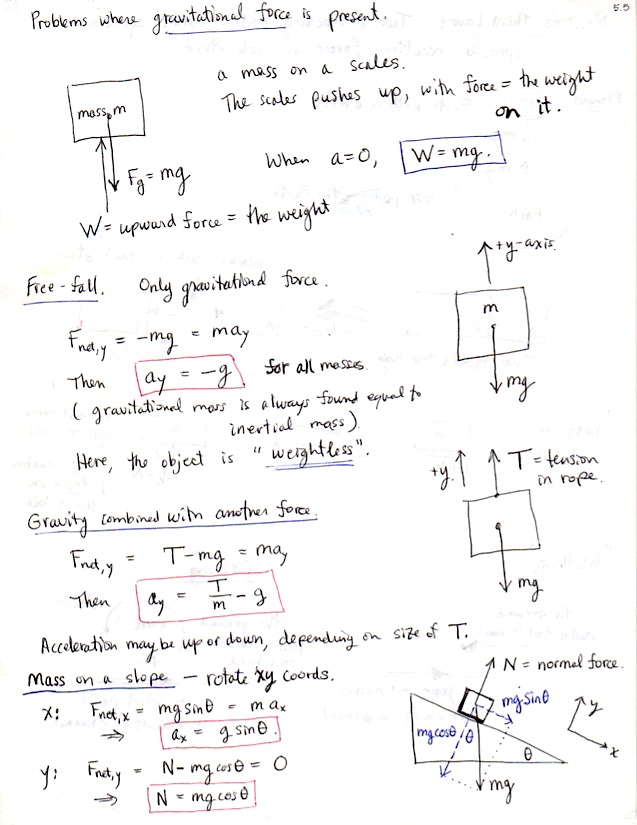 Problems where gravitational force is present.
5.5
a mass on a scales.
The scales pushes up, with force = the weight
on it.
mass, m
When a=0, W = mg.
Fg = mg
W = upward force = the weight
+y-axis.
Free-fall. Only gravitational force.
m
Fnet,y = -mg = may
mg
Then ay = -g for all masses
(gravitational mass is always found equal to
inertial mass).
Here, the object is "weightless".
+y
T = tension
in rope.
Gravity combined with another force.
Fnet,y = T-mg = may
mg
Then ay = T/m - g
Acceleration may be up or down, depending on size of T.
Mass on a slope — rotate xy coords.
N = normal force.
x: Fnet,x = mg sinθ = m ax
mg sinθ
y
⇒ ax = g sinθ.
mg cosθ
θ
θ
x
y: Fnet,y = N - mg cosθ = 0
mg
⇒ N = mg cosθ